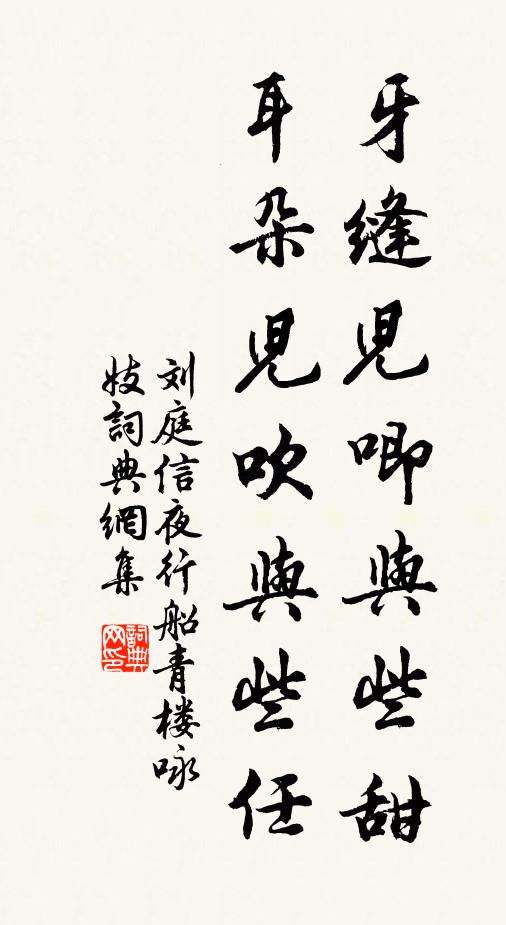 牙縫兒唧與些甜
耳朵兒吹與些任
刘庭信夜行船青楼咏
妓詞典網集
詞典
网印